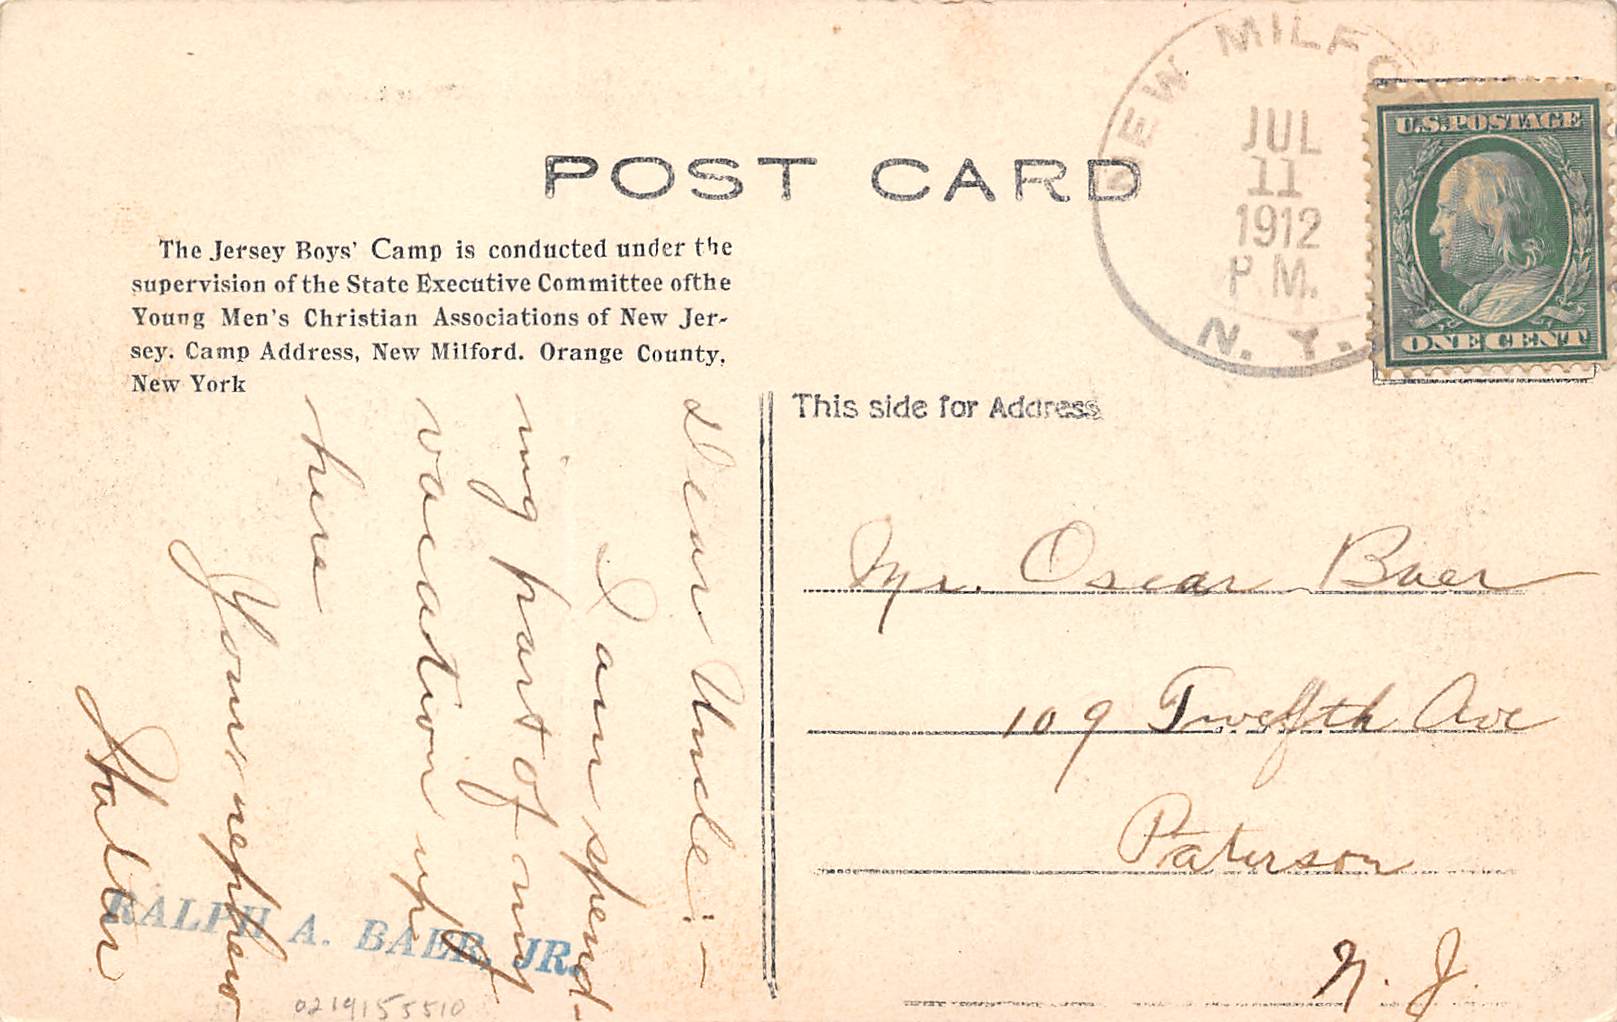 NEW MILFO
JUL
11
1912
P.M.
N. Y.
U.S. POSTAGE
ONE CENT
POST CARD
The Jersey Boys' Camp is conducted under the
supervision of the State Executive Committee ofthe
Young Men's Christian Associations of New Jer-
sey. Camp Address, New Milford. Orange County,
New York
This side for Address
Dear Uncle:-
I am spend-
ing part of my
vacation up
here
Your nephew
RALPH A. BAER, JR.
Mr. Oscar Baer
109 Twelfth Ave
Paterson
N. J.
0219155510